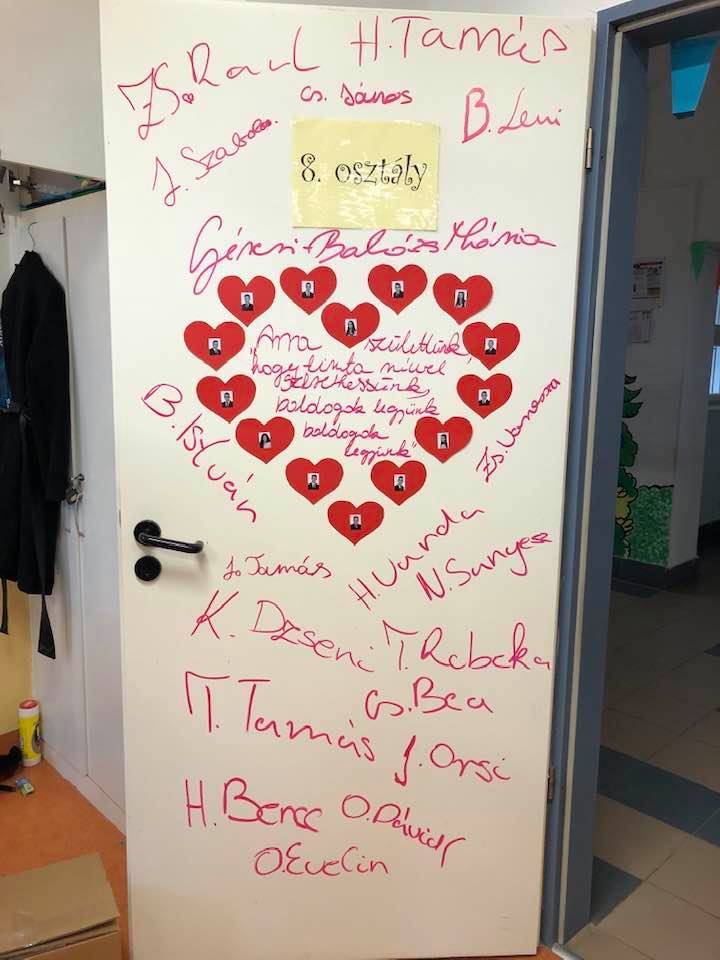 Zs. Raul
H. Tamás
Cs. János
B. Leni
J. Szabolcs.
8. osztály
Géresi-Balázs Mária
„Arra születtünk,
hogy tiszta szívvel
szerethessünk,
boldogok legyünk
boldogok
legyünk"
B. István
Zs. Vanessza
J. Tamás
H. Vanda
N. Sunyesz
K. Dzseni
T. Rebeka
Cs. Bea
T. Tamás
J. Orsi
H. Bence
O. Dávid
O. Evelin